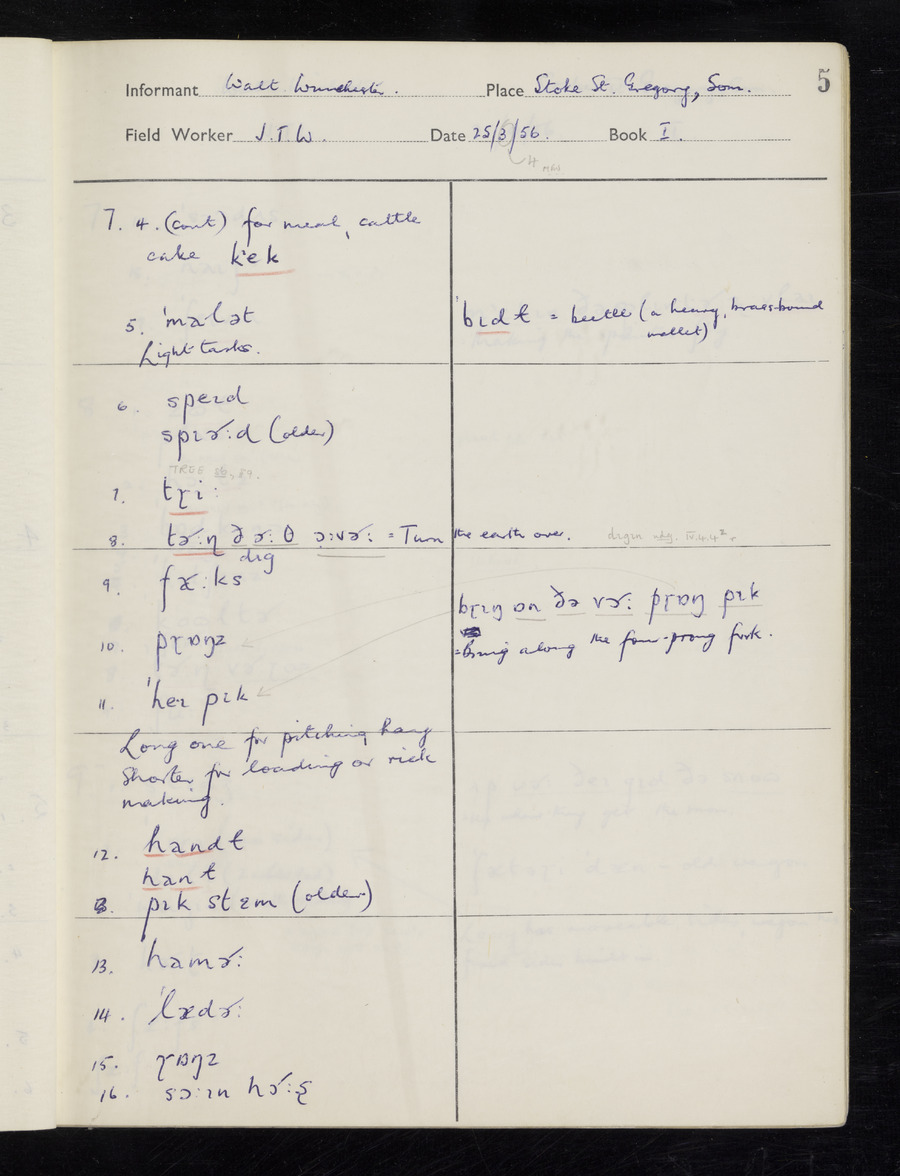 5
Informant Walt Winchester. Place Stoke St. Gregory, Som.
Field Worker J.T.W. Date 25/3/56. Book I.
4
7. 4. (cont) for meal, cattle
cake kˈek
5. ˈmalət
Light tasks.
ˈbɪdɫ = beetle (a heavy, brass-bound
mallet)
6. speɪd
spɪɚ:d (older)
TREE 89.
7. tɽi:
8. tɚ:n ðɚ:θ ɔ:vɚ: = Turn the earth over. dɪgɪn IV.4.4²
dɪg
9. fæ:ks
10. pɽɒŋz
bɽɪŋ ɒn ðə vɚ: pɽɒŋ pɪk
= Bring along the four-prong fork.
11. ˈheɪ pɪk
Long one for pitching hay
Shorter for loading or rick
making.
12. handɫ
hanɫ
pɪk stɛm (older)
13. hamɚ:
14. ˈlædɚ:
15. ɽɒŋz
16. sɔ:ɪn hɚ:ʂ